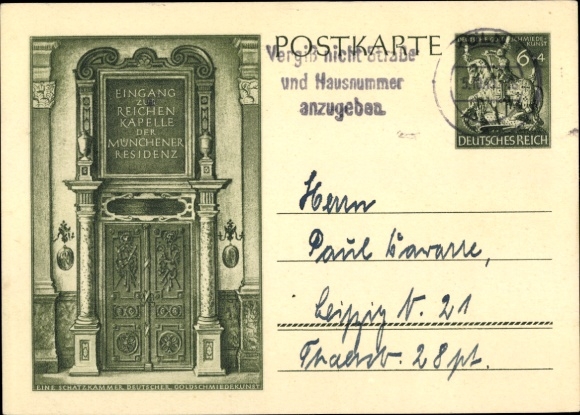 POSTKARTE
Vergiß nicht Straße
und Hausnummer
anzugeben.
6+4
DEUTSCHES REICH
EINGANG
ZUR
REICHEN
KAPELLE
DER
MÜNCHENER
RESIDENZ
Herrn
Paul
Leipzig N. 21
28 pt.
EINE SCHATZKAMMER DEUTSCHER GOLDSCHMIEDEKUNST